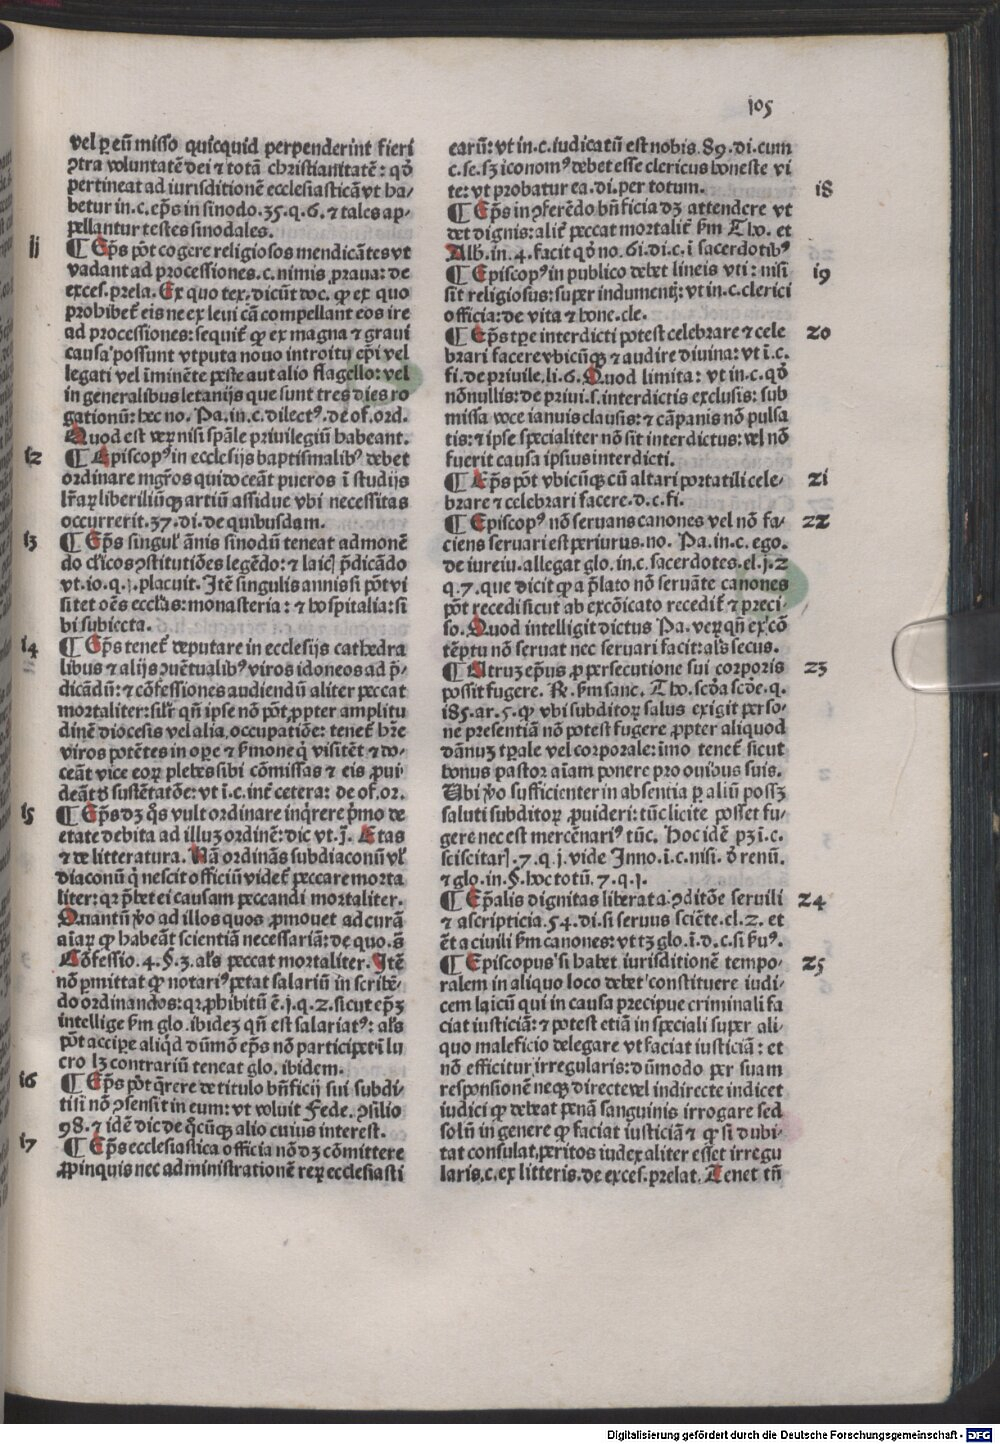 105
vel ꝑ eū misso quicquid perpenderint fieri
ꝯtra voluntatē dei ⁊ totā christianitatē: qd̓
pertineat ad iurisditionē ecclesiasticā vt ha-
betur in.c.ep̄s in sinodo.35.q.6.⁊ tales ap-
pellantur testes sinodales.
11
¶ Ep̄s pōt cogere religiosos mendicātes vt
vadant ad processiones.c.nimis praua: de
exces.prela. Ex quo tex.dicūt doc. ꝙ ex quo
probibet̉ eis ne ex leui cā compellant eos ire
ad processiones: sequit̉ ꝙ ex magna ⁊ graui
causa possunt vtputa nouo introitu ep̄i vel
legati vel īminēte peste aut alio flagello: vel
in generalibus letanijs que sunt tres dies ro
gationū: hec no. Pa.in.c.dilectꝰ.de of.ord.
Quod est veꝝ nisi sp̄ale priuilegiū habeant.
12
¶ Episcopꝰ in ecclesijs baptismalibꝰ debet
ordinare mg̃ros qui doceāt pueros ī studijs
lr̄aꝝ liberiliūqꝫ artiū assidue vbi necessitas
occurrerit.37.di.de quibusdam.
13
¶ Ep̄s singul̉ ānis sinodū teneat admonē
do cl̓icos ꝯstitutiōes legēdo: ⁊ laicꝭ p̄dicādo
vt.10.q.j.placuit. Itē singulis annis si pōt vi
sitet oēs eccl̓as: monasteria: ⁊ hospitalia: si
bi subiecta.
14
¶ Ep̄s tenet̉ deputare in ecclesijs cathedra
libus ⁊ alijs ꝯuētualibꝰ viros idoneos ad p̄-
dicādū: ⁊ cōfessiones audiendū aliter peccat
mortaliter: sil̓r qn̄ ipse nō pōt ꝓpter amplitu
dinē diocesis vel alia, occupatiōe: tenet̉ h̄re
viros potētes in oꝑe ⁊ ẜmone q̇ visitēt ⁊ do-
ceāt vice eoꝝ plebes sibi cōmissas ⁊ eis ꝓui-
deāt d̓ sustētatōe: vt ī.c.int̉ cetera: de of.or.
15
¶ Ep̄s dꝫ q̇s vult ordinare inq̇rere p̉mo de
etate debita ad illuꝫ ordinē: dic vt.j̄. Etas
⁊ de litteratura. Nā ordināns subdiaconū vl̓
diaconū q̇ nescit officiū videt̉ peccare morta
liter: qꝛ p̄bet ei causam peccandi mortaliter.
Quantū v̉o ad illos quos ꝓmouet ad curā
aīaꝝ ꝙ habeāt scientiā necessariā: de quo.s̄
Cōfessio.4.§.3. al̓s peccat mortaliter. Itē
nō ꝑmittat ꝙ notariꝰ petat salariū in scribē-
do ordinandos: qꝛ ꝓhibitū ē.j.q.2.sicut ep̄ꝫ
intellige ẜm glo.ibideꝫ qn̄ est salariatꝰ: al̓s
pōt acciꝑe aliq̇d dūmō ep̄s nō participet ī lu
cro lꝫ contrariū teneat glo.ibidem.
16
¶ Ep̄s pōt q̄rere de titulo bn̄ficij sui subdi-
ti si nō ꝯsensit in eum: vt voluit Fede.ꝯsilio
98.⁊ idē dic de q̇cūqꝫ alio cuius interest.
17
¶ Ep̄s ecclesiastica officia nō dꝫ cōmittere
ꝓpinquis nec administrationē reꝝ ecclesiasti
earū: vt in.c.iudicatū est nobis.89.di.cum
c.se.sꝫ iconomꝰ debet esse clericus honeste vi
te: vt probatur ea.di.per totum.
18
¶ Ep̄s in ꝯferēdo bn̄ficia dꝫ attendere vt
det dignis: alit̉ peccat mortalit̉ ẜm Tho. et
Alb.in.4.facit qd̓ no.61.di.c.ī sacerdotibꝰ
19
¶ Episcopꝰ in publico debet lineis vti: nisi
sit religiosus: super indumentꝭ: vt in.c.clerici
officia: de vita ⁊ hone.cle.
20
¶ Ep̄s tꝑe interdicti potest celebrare ⁊ cele
brari facere vbicūqꝫ ⁊ audire diuina: vt ī.c.
fi.de priuile.li.6. Quod limita: vt in.c.qd̓
nōnullis: de priui.s.interdictis exclusis: sub
missa voce ianuis clausis: ⁊ cāpanis nō pulsa
tis: ⁊ ipse specialiter nō sit interdictus: vel nō
fuerit causa ipsius interdicti.
21
¶ Ep̄s pōt vbicūqꝫ cū altari portatili cele-
brare ⁊ celebrari facere.d.c.fi.
22
¶ Episcopꝰ nō seruans canones vel nō fa-
ciens seruari est periurus.no. Pa.in.c.ego.
de iureiu.allegat glo.in.c.sacerdotes.el.j.2
q.7.que dicit ꝙ a p̄lato nō seruāte canones
pōt recedi sicut ab excōicato recedit̉ ⁊ preci-
so. Quod intelligit dictus Pa. veꝝ qn̄ ex ꝯō
tēptu nō seruat nec seruari facit: al̓s secus.
23
¶ Utruꝫ ep̄us ꝓ persecutione sui corporis
possit fugere. R̄. ẜm sanc. Tho. scd̓a scd̓e.q.
185.ar.5.ꝙ vbi subditoꝝ salus exigit perso-
ne presentiā nō potest fugere ꝓpter aliquod
dānuꝫ tꝑale vel corporale: īmo tenet̉ sicut
bonus pastor aīam ponere pro ouibus suis.
Ubi v̉o sufficienter in absentia ꝑ aliū possꝫ
saluti subditoꝝ ꝓuideri: tūc licite posset fu-
gere nec est mercēnariꝰ tūc. Hoc idē pꝫ ī.c.
sciscitarꝭ.7.q.j.vide Inno.ī.c.nisi.d̓ renū.
⁊ glo.in.§.hoc totū.7.q.j.
24
¶ Ep̄alis dignitas liberat a ꝯditōe seruili
⁊ ascripticia.54.di.si seruus sciēte.el.2.et
ēt a ciuili ẜm canones: vt tꝫ glo.ī.d.c.si ẜuꝰ.
25
¶ Episcopus si habet iurisditionē tempo-
ralem in aliquo loco debet constituere iudi-
cem laicū qui in causa precipue criminali fa
ciat iusticiā: ⁊ potest etiā in speciali super ali-
quo maleficio delegare vt faciat iusticiā: et
nō efficitur irregularis: dūmodo per suam
responsionē neqꝫ directe vel indirecte indicet
iudici ꝙ debeat penā sanguinis irrogare sed
solū in genere ꝙ faciat iusticiā ⁊ ꝙ si dubi-
tat consulat, peritos iudex aliter esset irregu
laris.c.ex litteris.de exces.prelat. Tenet tn̄
Digitalisierung gefördert durch die Deutsche Forschungsgemeinschaft - DFG